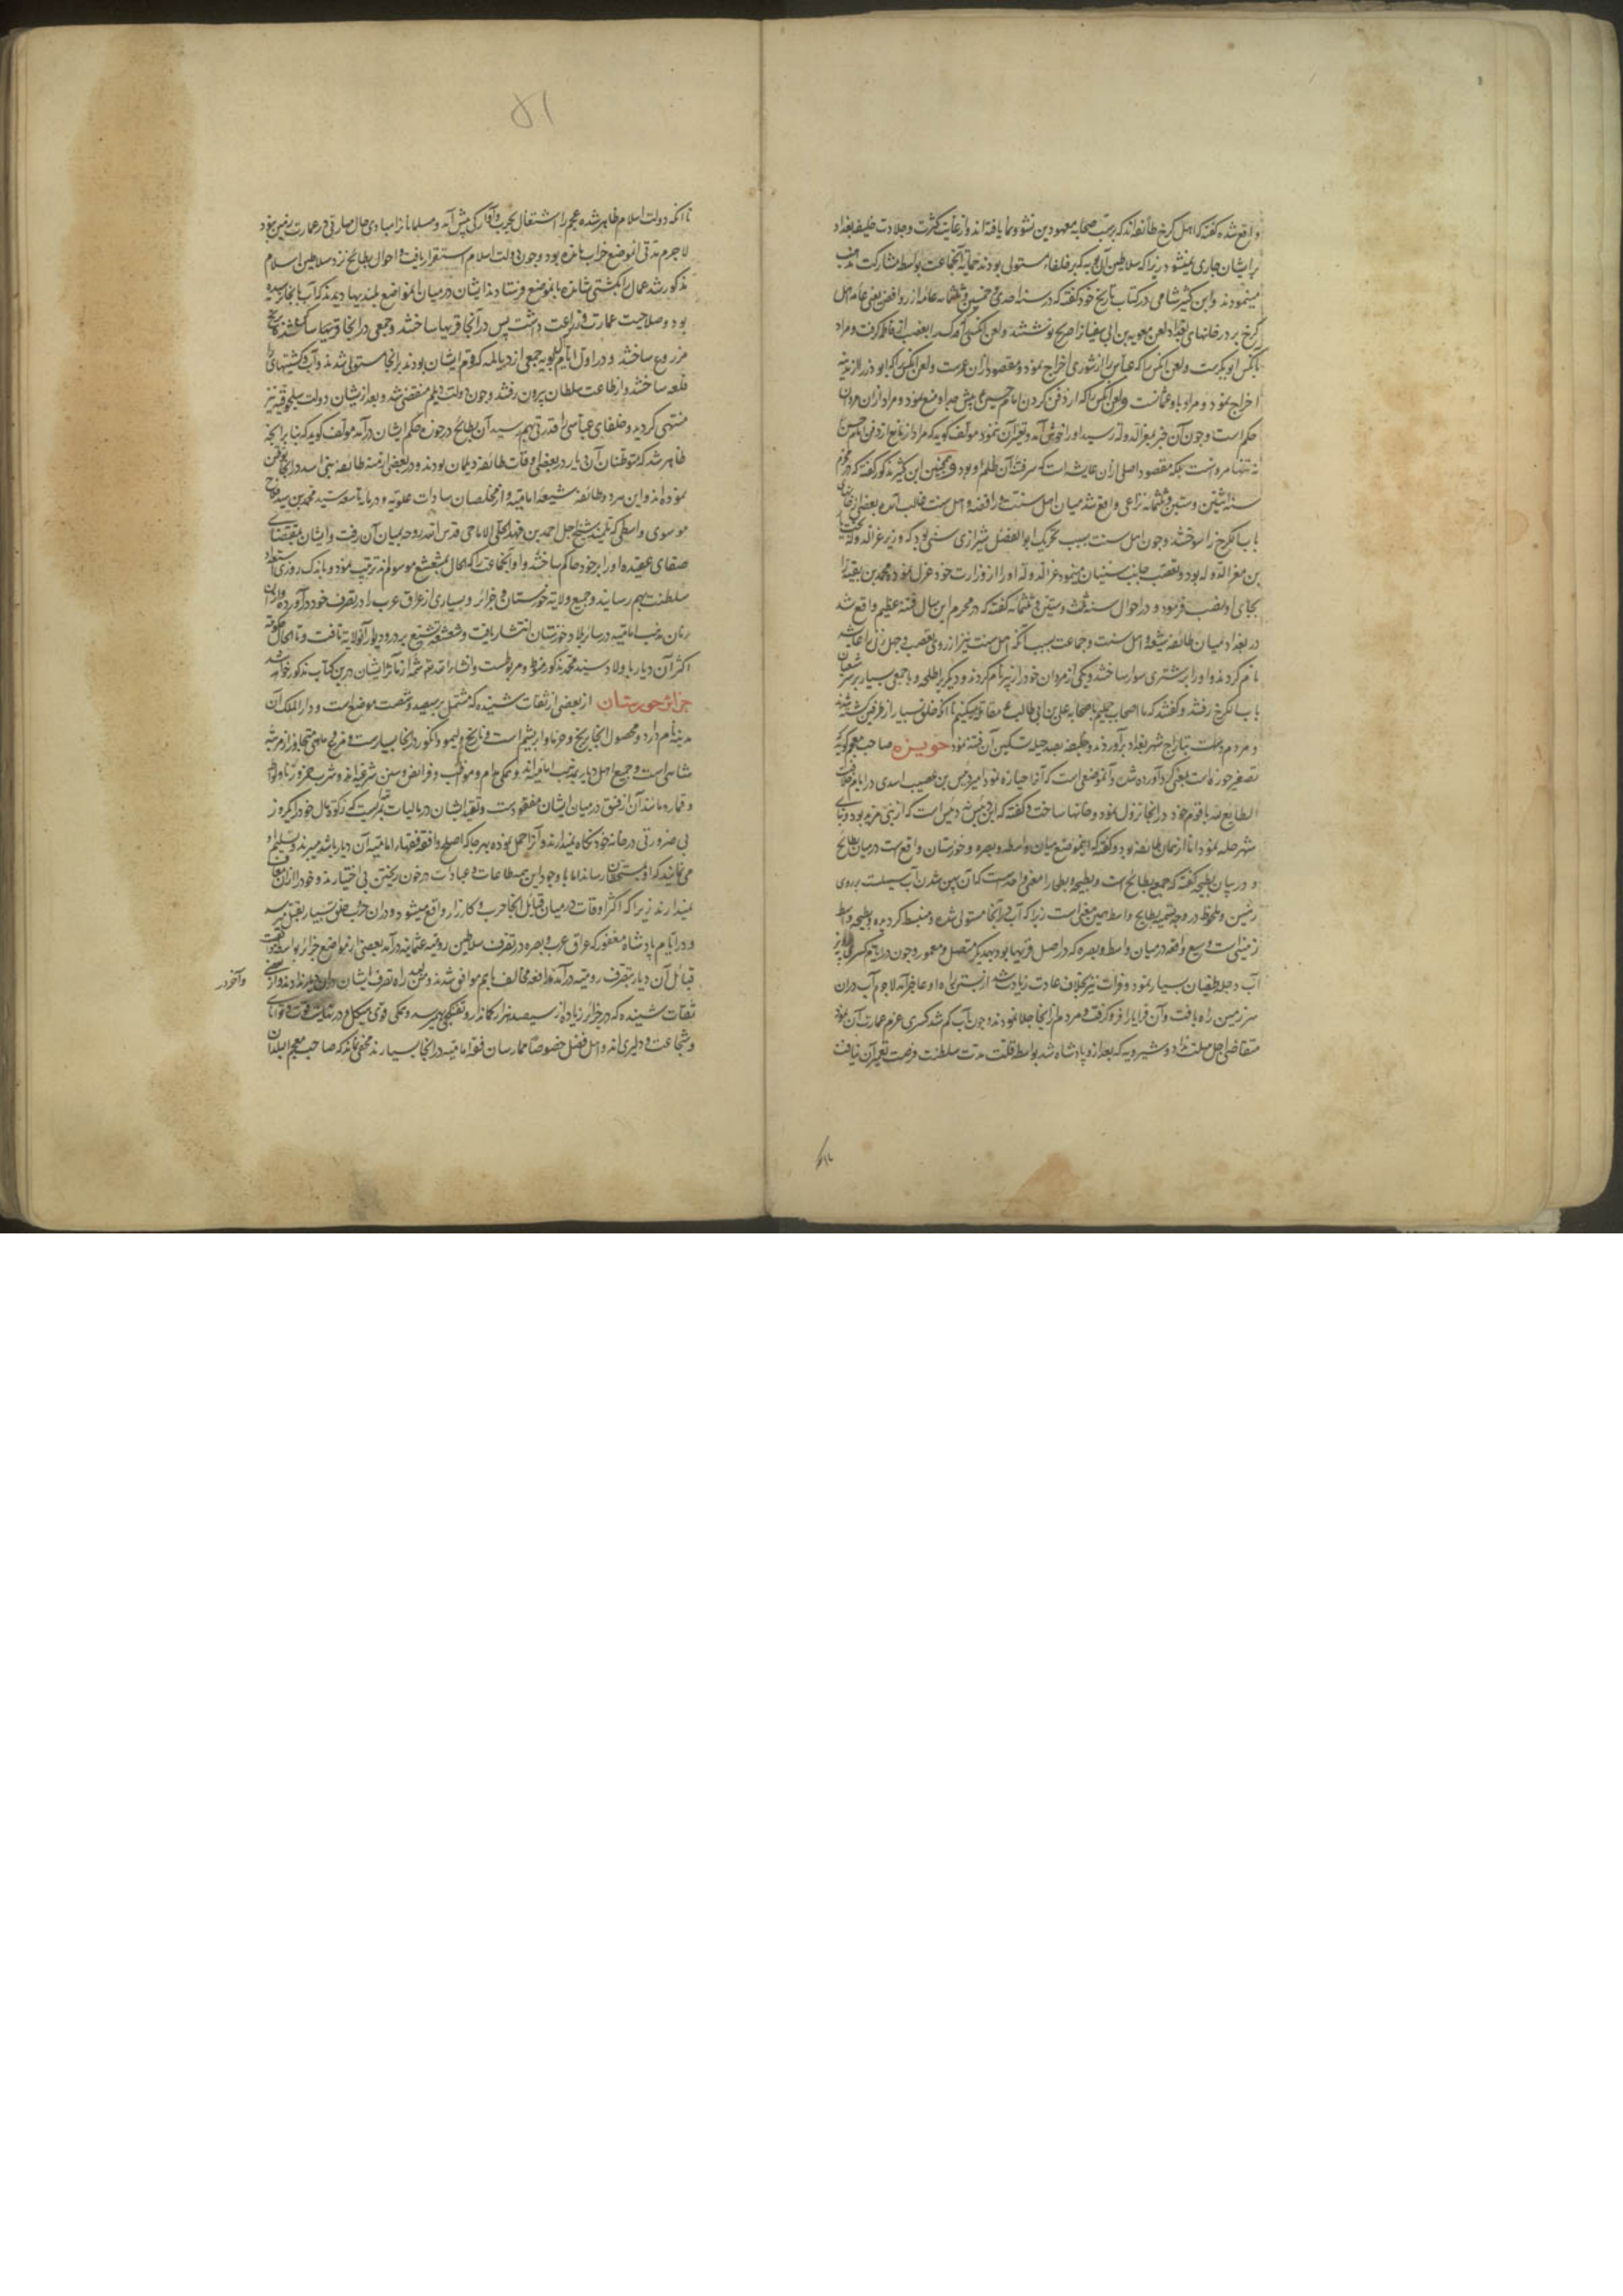 واقع شده گفته که اهل کرخ طائفه اند که بر سب صحابه معهودین نشو و نما یافته اند و از غایت کثرت و جلادت خلیفه بغداد
بر ایشان جاری نمیشود زیرا که سلاطین آل بویه که بر خلفاء مستولی بودند حمایة آنجماعت بواسطه مشارکت مذهب
مینمودند و ابن کثیر شامی در کتاب تاریخ خود گفته که در سنه احدی و خمسین و ثلثمائه عامه از روافض یعنی عامه اهل
کرخ بر در خانهای بغداد لعن معویه بن ابی سفیان را صریح نوشتند و لعن آنکس که فدک را بغصب از فاطمه گرفت و مراد
بآنکس ابوبکرست و لعن آنکس را که عباس را از شوری اخراج نمود و مقصود از آن عمرست و لعن آنکس که ابوذر را از مدینه
اخراج نمود و مراد باو عثمانست و لعن آنکس را که از دفن کردن امام حسن پیش جد او منع نمود و مراد ازان مروان
حکم است و چون آن خبر بمعزالدوله رسید او را خوش آمد و تغیر آن ننمود مولف گوید که مراد از مانع از دفن امام حسن
نه تنها مروانست بلکه مقصود اصلی ازان عایشه است که سر فتنه آن ظلم او بود و همچنین ابن کثیر مذکور گفته که در محرم
سنه اثنین و ستین و ثلثمائه نزاعی واقع شد میان اهل سنت و رافضه و اهل سنت غالب آمده بعضی از
باب الکرخ را سوختند و چون اهل سنت بسبب تحریک ابوالفضل شیرازی سنی بود که وزیر عزالدوله بختیار
بن معزالدوله بود و تعصب جانب سنیان مینمود عزالدوله او را از وزارت خود عزل نموده محمد بن بقیه را
بجای او نصب فرمود و در احوال سنه ثلث و ستین و ثلثمائه گفته که در محرم این سال فتنه عظیم واقع شد
در بغداد میان طائفه شیعه و اهل سنت و جماعت بسبب آنکه اهل سنت نیز از روی تعصب و جهل زنی را عایشه
نام کردند و او را بر شتری سوار ساختند و یکی از مردان خود را زبیر نام کردند و دیگری را طلحه و با جمعی بسیار بر سر شیعیان
باب الکرخ رفتند و گفتند که ما اصحاب جملیم با صحابه علی بن ابی طالب ع مقاتله میکنیم تا آنکه خلق بسیار از طرفین کشته شدند
و مردم دست بتاراج شهر بغداد برآوردند و خلیفه بصد حیله تسکین آن فتنه نمود حویزه صاحب معجم گوید که
تصغیر حوزه است یعنی گردآورده شده و آن موضعی است که آنرا حیازه نمود امیر دبیس بن عفیف اسدی در ایام خلافت
الطایع لله با قوم خود در آنجا نزول نمود و خانها ساخت و گفته که این دبیس نه دبیس است که از بنی مزید بود و بنای
شهر حله نمود اما از همان طائفه بود و گفته که اینموضع میان واسط و بصره و خوزستان واقع است در میان بطایح
و در بیان بطیحه گفته که جمع بطایح است و بطیحه و بطحا را معنی واحد است که آن پهن شدن آب سیلست بر روی
زمین و ملحوظ در وجه تسمیه بطایح واسط همین معنی است زیرا که آب در آنجا مستولی شده و منبسط گردیده و بطیحه واسط
زمینی است وسیع واقعه در میان واسط و بصره که در اصل قریها بود بیکدیگر متصل و معمور و چون در ایام کسری پرویز
آب دجله طغیان بسیار نمود و فرات نیز بخلاف عادت زیادت شد از بستن راه او عاجز آمد لاجرم آب دران
سرزمین راه یافت و آن قرایا را فرو گرفت و مردم از آنجا جلا نمودند و چون آب کم شد کسری عزم عمارت آن نمود
متقاضی اجل مهلت نداد و شیرویه که بعد از و پادشاه شد بواسطه قلت مدت سلطنت فرصت تعمیر آن نیافت
۵۱
تا آنکه دولت اسلام ظاهر شده عجم را اشتغال بحرب و پیکار پیش آمد و مسلمانان را در مبادی حال مهارتی در عمارت زمین نبود
لاجرم مدتی آن موضع خراب مانده بود و چون دولت اسلام استقرار یافت و احوال بطایح نزد سلاطین اسلام
مذکور شد عمال را بکشتی نشانده بآنموضع فرستادند ایشان در میان آنمواضع بلندیها دیدند که آب بآنجا نرسیده
بود و صلاحیت عمارت و زراعت داشت پس در آنجا قریها ساختند و جمعی در آنجا قریها ساکن شدند و برنج
مزروع ساختند و در اول ایام آل بویه جمعی از دیالمه که قوم ایشان بودند بر آنجا مستولی شدند و آب و کشتیهای را
قلعه ساختند و از طاعت سلطان بیرون رفتند و چون دولت دیلم منقضی شد و بعد از یشان دولت سلجوقیه نیز
منتهی گردید و خلفای عباسی را قدرتی بهم رسید آن بطایح در حوزه حکم ایشان درآمد مولف گوید که بنابر آنچه
ظاهر شد که متوطنان آن دیار در بعضی اوقات طائفه دیلمان بودند و در بعضی ازمنه طائفه بنی اسد در آنجا توطن
نموده اند و این هر دو طائفه شیعه امامیه و از مخلصان سادات علویه و در مایه تاسعه سید محمد بن سید فلاح
موسوی واسطی که تلمیذ شیخ اجل احمد بن فهد الحلی الامامی قدس الله روحه بمیان آن رفت و ایشان بمقتضای
صفای عقیده او را بر خود حاکم ساختند و او آنجماعت را که الحال بمشعشع موسومند تربیت نمود و باندک روزی استعداد
سلطنت بهم رسانید و جمیع ولایة خوزستان و جزایر و بسیاری از عراق عرب را در تصرف خود درآورده و در آن
زمان مذهب امامیه در سایر بلاد خوزستان انتشار یافت و شعشعه تشیع بر در و دیوار آنولایة تافت و تا الحال حکومت
اکثر آن دیار باولاد سید محمد مذکور منوط و مربوطست و انشاء الله تعالی شمه از مآثر ایشان درین کتاب مذکور خواهد شد
جزائر خوزستان از بعضی از ثقات شنیده که مشتمل بر سیصد و شصت موضع است و دار الملک آن
مدینه نام دارد و محصول آنجا برنج و خرما و ابریشم است و نارنج و لیمو و انگور در آنجا بسیارست و مرغ و ماهی متجاوز از مرتبه
تناهی است و جمیع اهل دیار بمذهب امامیه اند و همگی رام و مواظب و فرائض و سنن شرعیه اند و شرب خمر و زنا و لواطه
و قمار و مانند آن از فسق در میان ایشان مفقودست و تقید ایشان در مالیات بمرتبه ایست که زکوة مال خود را یکروز
بی ضرورتی در خانه خود نگاه نمیدارند و آنرا حمل نموده بهر جا که اصلح و افقه فقهاء امامیه آن دیار باشد میبرند و تسلیم او
می نمایند که او بمستحقان رساند اما با وجود این همه طاعات و عبادات در خون ریختن بی اختیارند و خود را ازان معاف
نمیدارند زیرا که اکثر اوقات در میان قبائل آنجا حرب و کارزار واقع میشود و دران حرب خلق بسیار بقتل میرسد
و در ایام پادشاه مغفور که عراق عرب و بصره در تصرف سلاطین رومیه عثمانیه درآمد بعضی از مواضع جزائر بواسطه
قبائل آن دیار بتصرف رومیه درآمد و دفعه مخالف باهم موافق شدند و من بعد راه تصرف ایشان دران دیار ندادند و از بعضی
ثقات شنیده که در جزائر زیاده از سیصد هزار کماندار و تفنگچی بهم رسد و همگی قوی هیکل و در نهایت قوت و توانای
و شجاعت و دلیری اند و اهل فضل خصوصا ممارسان فقه امامیه در آنجا بسیارند مخفی نماند که صاحب معجم البلدان
و آخر در